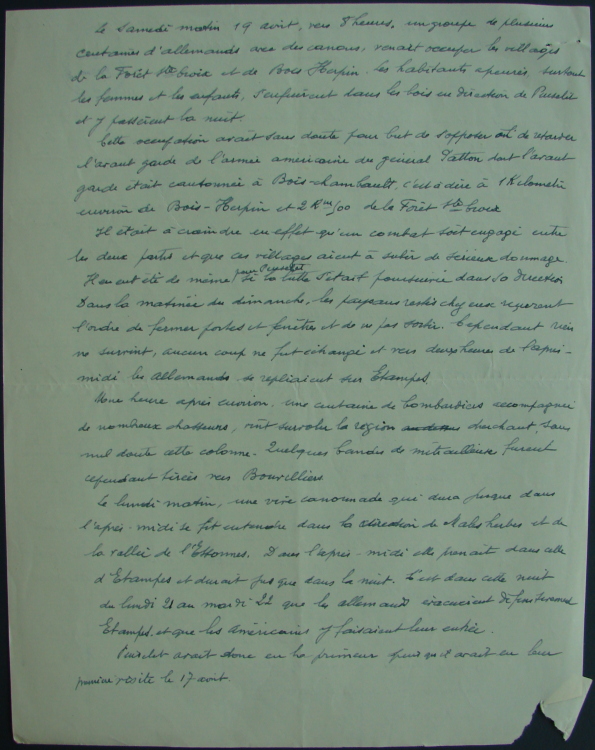 Le Samedi matin 19 août, vers 8 heures, un groupe de plusieurs
centaines d'allemands avec des canons, venait occuper les villages
de la Forêt Ste Croix et de Bois Herpin. les habitants apeurés, surtout
les femmes et les enfants, s'enfuirent dans les bois en direction de Puiselet
et y passèrent la nuit.
Cette occupation avait sans doute pour but de s'opposer ou de retarder
l'avant garde de l'armée américaine du général Patton dont l'avant
garde était cantonnée à Bois-chambault, c'est à dire à 1 Kilomètre
environ de Bois-Herpin et 2 Km 500 de la Forêt Ste Croix
Il était à craindre en effet qu'un combat soit engagé entre
les deux partis et que ces villages aient à subir de sérieux dommage.
Il en eut été de même pour Puiselet si la lutte s'était poursuivie dans sa direction
Dans la matinée du dimanche, les paysans restés chez eux reçurent
l'ordre de fermer portes et fenêtres et de ne pas sortir. Cependant rien
ne survint, aucun coup ne fut échangé et vers deux heures de l'après-
midi les allemands se repliaient sur Etampes.
Une heure après environ, une centaine de bombardiers accompagnés
de nombreux chasseurs, vint survoler la région cherchant, sans
nul doute cette colonne. Quelques bandes de mitrailleuse furent
cependant tirées vers Bouvilliers
Le lundi matin, une vive canonnade qui dura jusque dans
l'après-midi se fit entendre dans la direction de Malesherbes et de
la vallée de l'Essonnes. Dans l'après-midi elle prenait dans celle
d'Etampes et durait jusque dans la nuit. C'est dans cette nuit
du lundi 21 au mardi 22 que les allemands évacuaient définitivement
Etampes, et que les Américains y faisaient leur entrée.
Puiselet avait donc eu la primeur puisqu'il avait eu leur
première visite le 17 août.